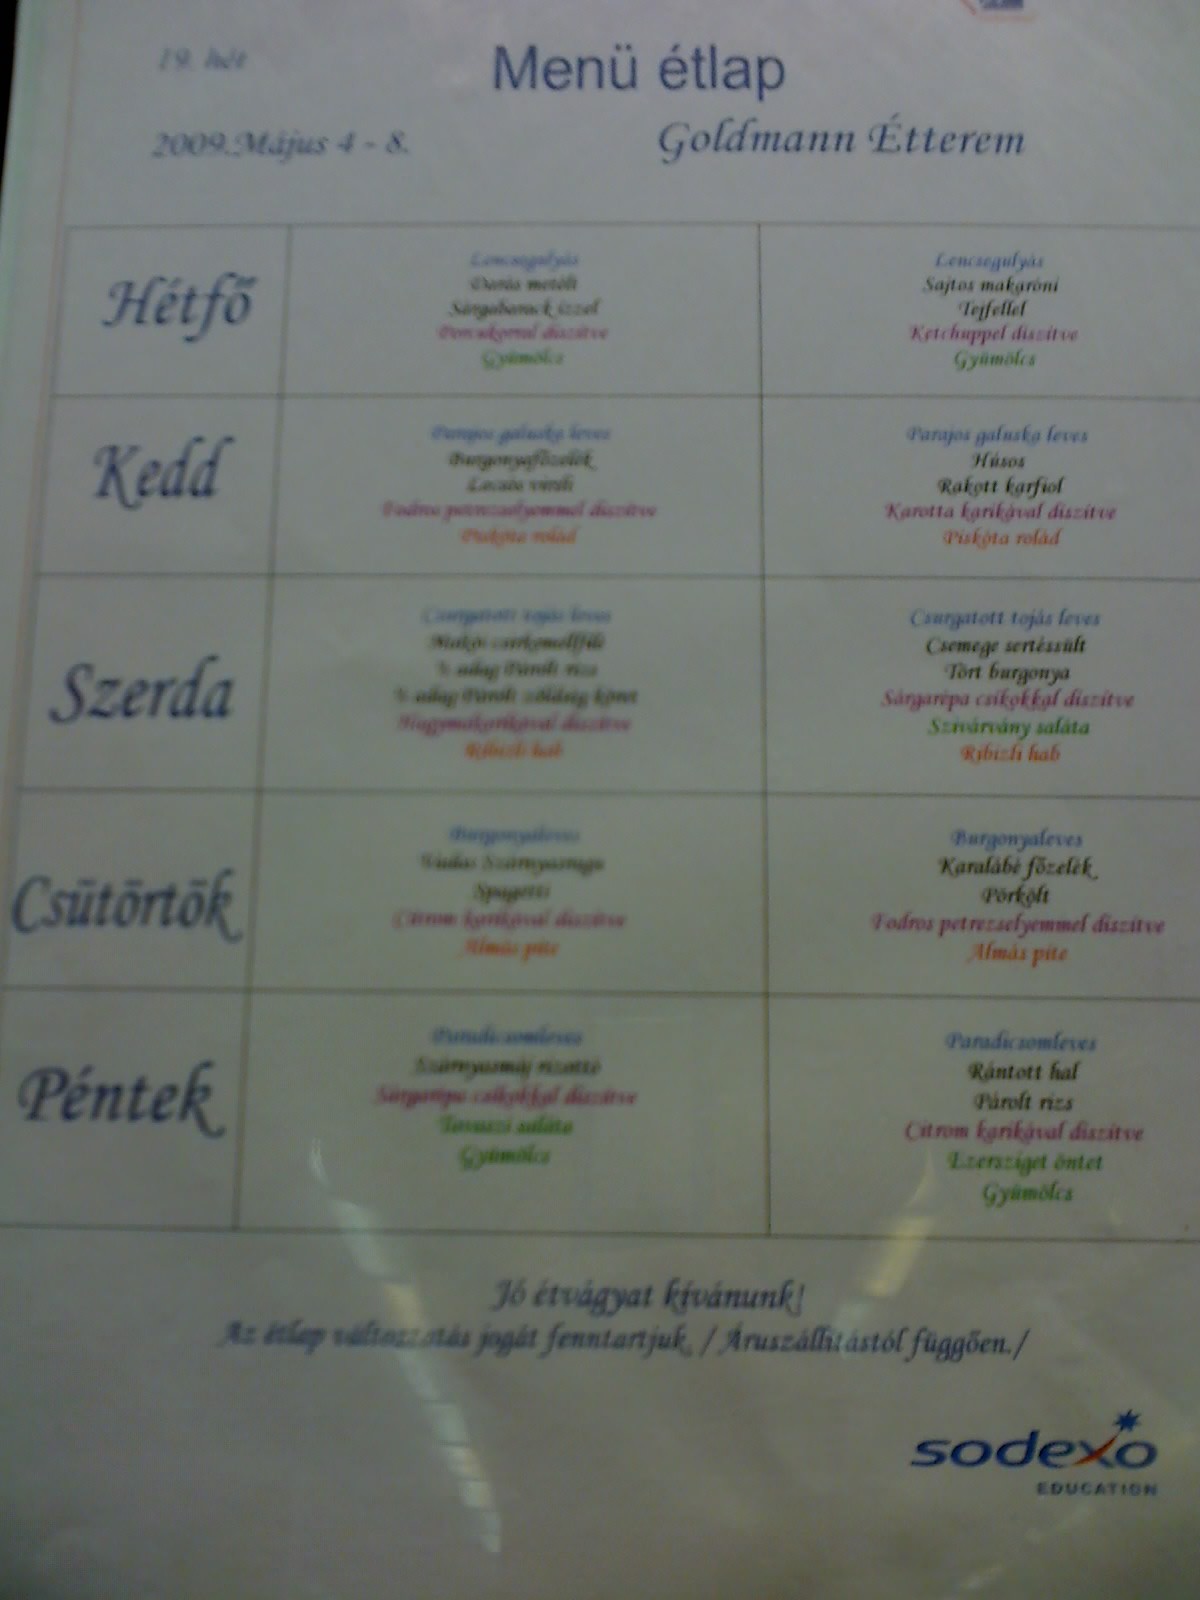 19. hét
Menü étlap
2009.Május 4 - 8.
Goldmann Étterem
Hétfő
Lencsegulyás
Daràs metélt
Sárgabarack ízzel
Porcukorral díszítve
Gyümölcs
Lencsegulyás
Sajtos makaróni
Tejfellel
Ketchuppel díszítve
Gyümölcs
Kedd
Parajos galuska leves
Burgonyafőzelék
Fodros petrezselyemmel díszítve
Piskóta rolád
Parajos galuska leves
Húsos
Rakott karfiol
Karotta karikával díszítve
Piskóta rolád
Szerda
Csurgatott tojás leves
Makói csirkemellfilé
½ adag Párolt rizs
½ adag Párolt zöldség köret
Hagymakarikával díszítve
Ribizli hab
Csurgatott tojás leves
Csemege sertéssült
Tört burgonya
Sárgarépa csíkokkal díszítve
Szivárvány saláta
Ribizli hab
Csütörtök
Burgonyaleves
Vadas Szárnyasragu
Spagetti
Citrom karikával díszítve
Almás pite
Burgonyaleves
Karalábé főzelék
Pörkölt
Fodros petrezselyemmel díszítve
Almás pite
Péntek
Paradicsomleves
Szárnyasmáj rizottó
Sárgarépa csíkokkal díszítve
Tavaszi saláta
Gyümölcs
Paradicsomleves
Rántott hal
Párolt rizs
Citrom karikával díszítve
Ezersziget öntet
Gyümölcs
Jó étvágyat kívánunk!
Az étlap változtatás jogát fenntartjuk. / Áruszállítástól függően./
sodexo
EDUCATION